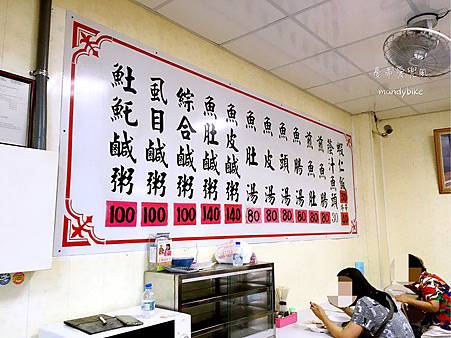 鹹粥 100
虱目鹹粥 100
綜合鹹粥 100
魚肚鹹粥 140
魚皮鹹粥 140
魚肚湯 80
魚皮湯 80
魚頭湯 80
魚腸湯 80
煎魚肚 80
煎魚腸 80
蔭汁魚頭 30
蝦仁飯
mandybike